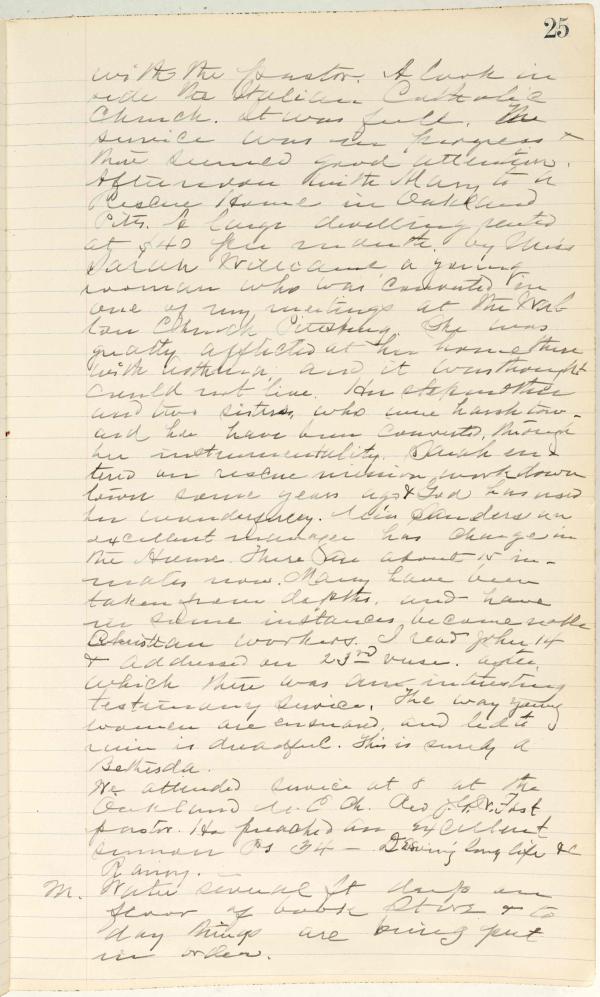 25
with the pastor. A look in
side the Italian Catholic
Church. It was full. The
service was in progress &
there seemed good attention.
Afternoon with Mary to a
Rescue Home in Oakland
Pitts. A large dwelling rented
at $40 per month, by Miss
Sarah Williams a young
woman who was converted in
one of my meetings at the Wal
ton Church Pittsburg. She was
greatly afflicted at her home there
with asthma and it was thought
could not live. Her stepmother
and two sisters, who were harsh tow-
ard her have been converted, through
her instrumentality. Sarah en-
tered on rescue mission work down
town some years ago & God has used
her wonderfully. Miss Sanders an
excellent manager has charge in
the Home. There are about 15 in-
mates now. Many have been
taken from depths, and have
in some instances become noble
Christian workers. I read John 14
& addressed on 23rd verse. after
which there was an interesting
testimony service. The way young
women are ensnared, and led to
ruin is dreadful. This is surely a
Bethesda.
We attended service at 8 at the
Oakland M. E. Ch. Rev
pastor. He preached an excellent
sermon Ps 34 – Desiring long life &c
Rainy.
M. Water several ft deep on
floor of book store & to
day things are being put
in order.